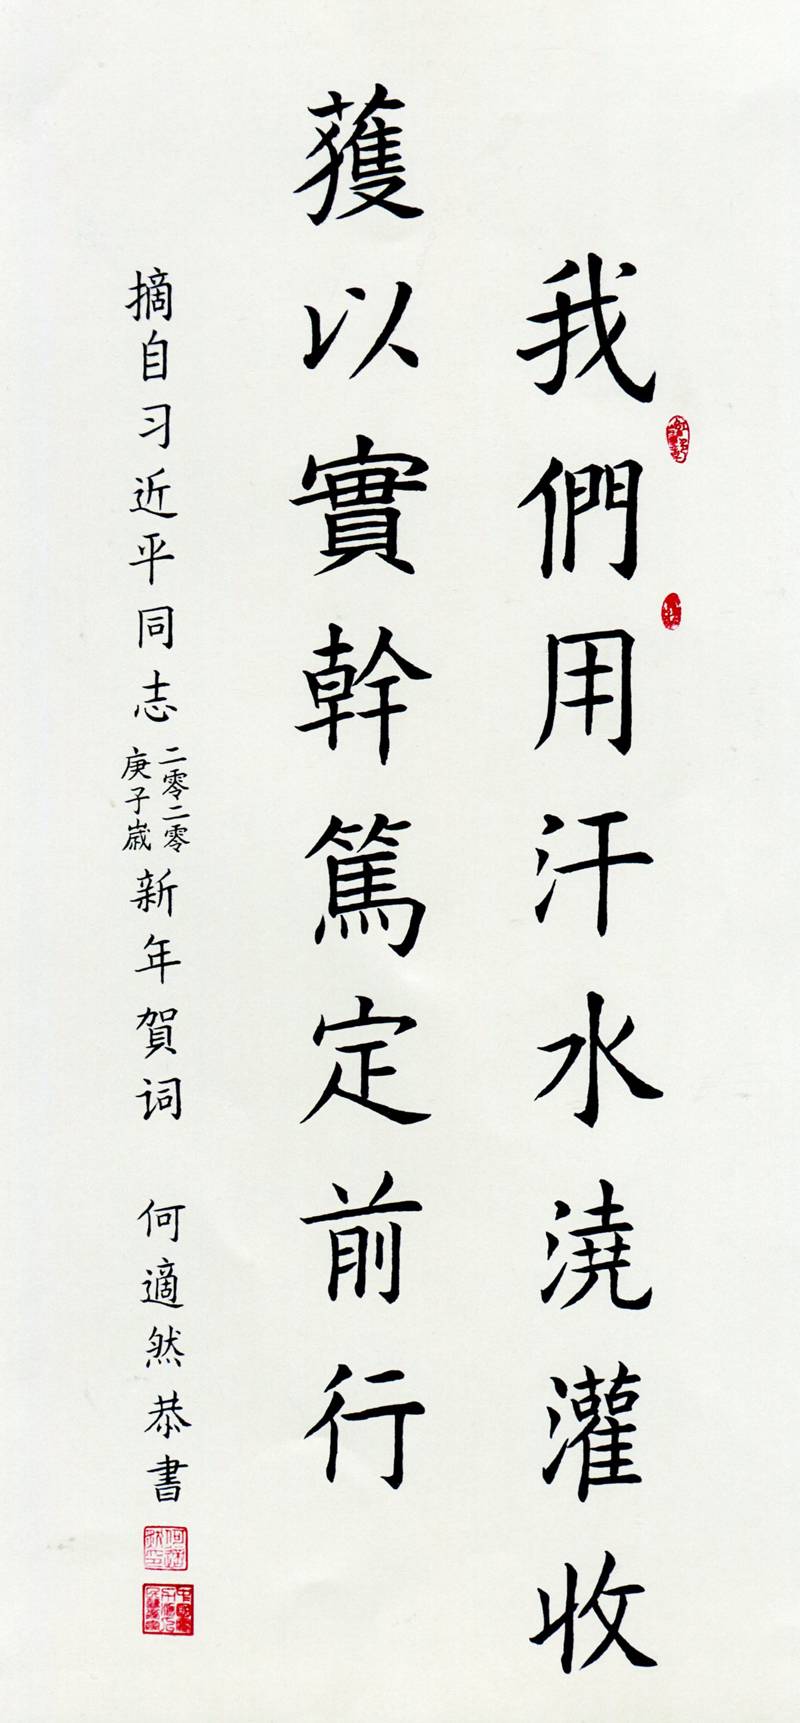 我們用汗水澆灌收
獲以實幹篤定前行
摘自习近平同志
二零二零
庚子歲
新年賀词
何適然恭書